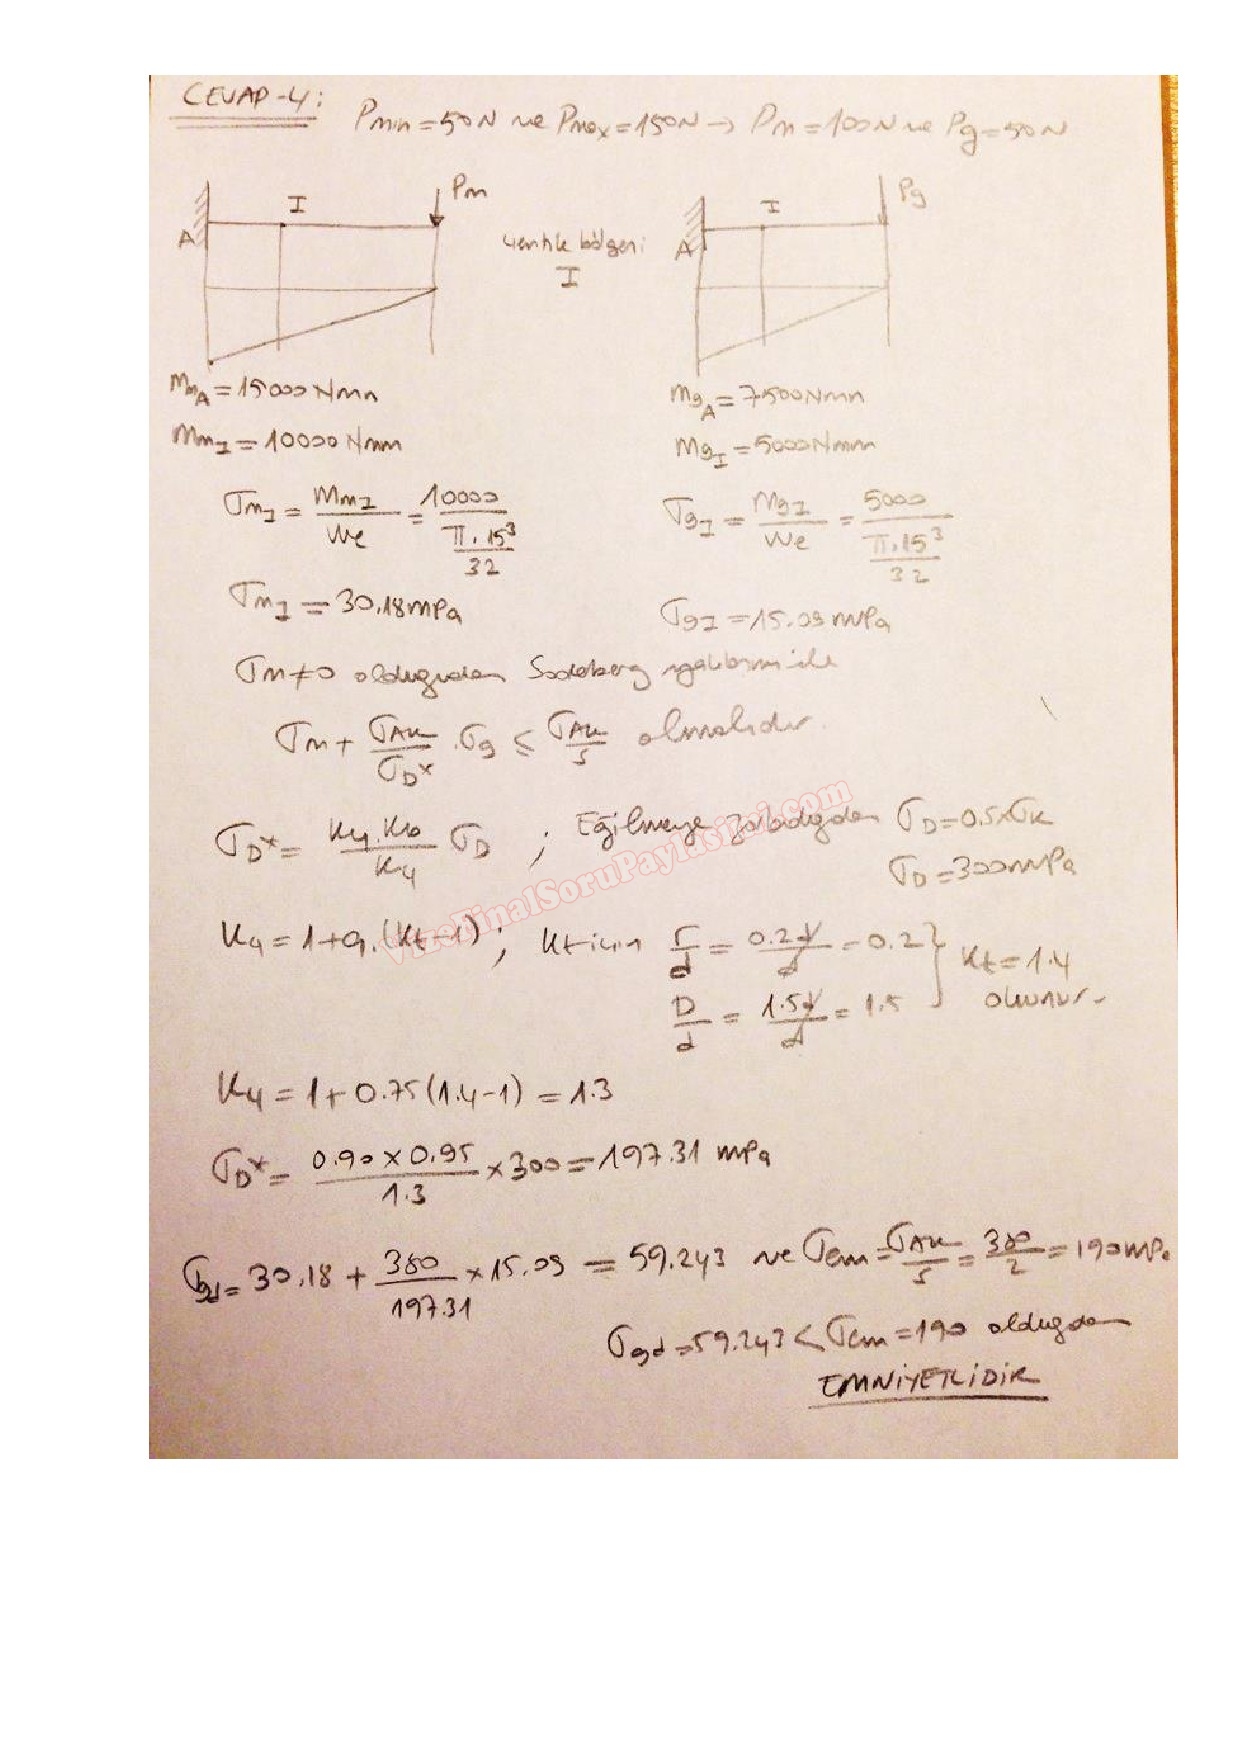 CEVAP-4:
Pmin=50N ve Pmax=150N → Pm=100N ve Pg=50N
I Pm
A
Çentik bölgesi
I
I Pg
A
MmA=15000Nmm
MmI=10000Nmm
MgA=7500Nmm
MgI=5000Nmm
σmI = MmI/We = 10000/(π.15³/32)
σmI=30,18MPa
σgI = MgI/We = 5000/(π.15³/32)
σgI=15.09MPa
σm≠0 olduğundan Soderberg ile
σm + σAK/σD* .σg ≤ σAK/S olmalıdır.
σD* = Ky.Kb/Kç σD ; Eğilmeye zorlandığından σD=0.5xσK
σD=300MPa
VizeFinalSoruPaylasimi.com
Kç=1+q.(Kt-1) ; Kt için r/d = 0.2d/d = 0.2
D/d = 1.5d/d = 1.5 } Kt=1.4 okunur.
Kç=1+0.75(1.4-1)=1.3
σD* = 0.90x0.95/1.3 x300=197.31 MPa
=30.18 + 380/197.31 x15.09 = 59.243 ve σem=σAK/S=380/2=190MPa
=59.243<σem=190 olduğundan
EMNİYETLİDİR